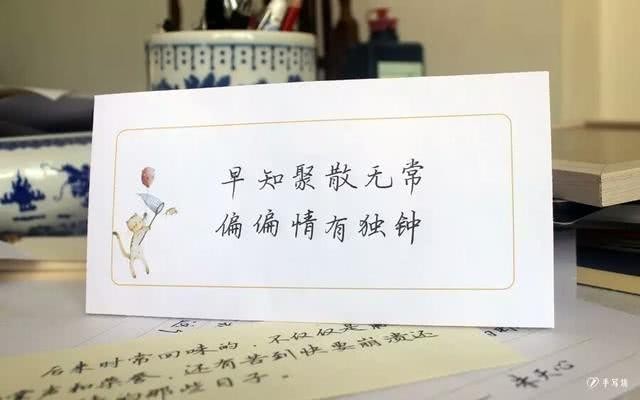 早知聚散无常
偏偏情有独钟
后来时常回味的，不仅仅是
和荣誉，还有苦到快要崩溃还
的那些日子。
手写情